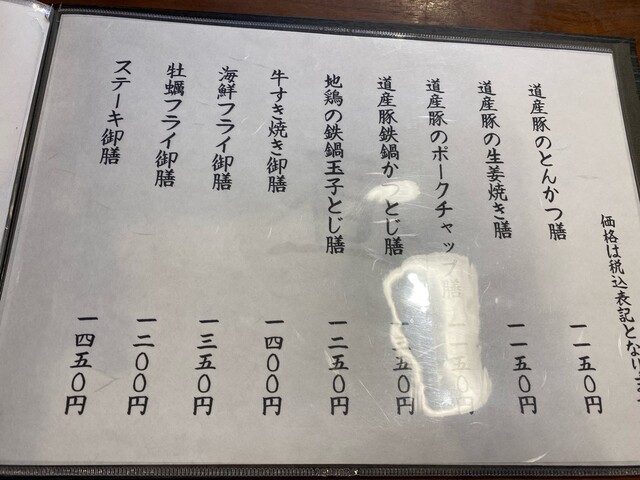 価格は税込表記となります
道産豚のとんかつ膳 一一五〇円
道産豚の生姜焼き膳 一一五〇円
道産豚のポークチャップ膳 一一五〇円
道産豚鉄鍋かつとじ膳 一三五〇円
地鶏の鉄鍋玉子とじ膳 一二五〇円
牛すき焼き御膳 一四〇〇円
海鮮フライ御膳 一三五〇円
牡蠣フライ御膳 一二〇〇円
ステーキ御膳 一四五〇円